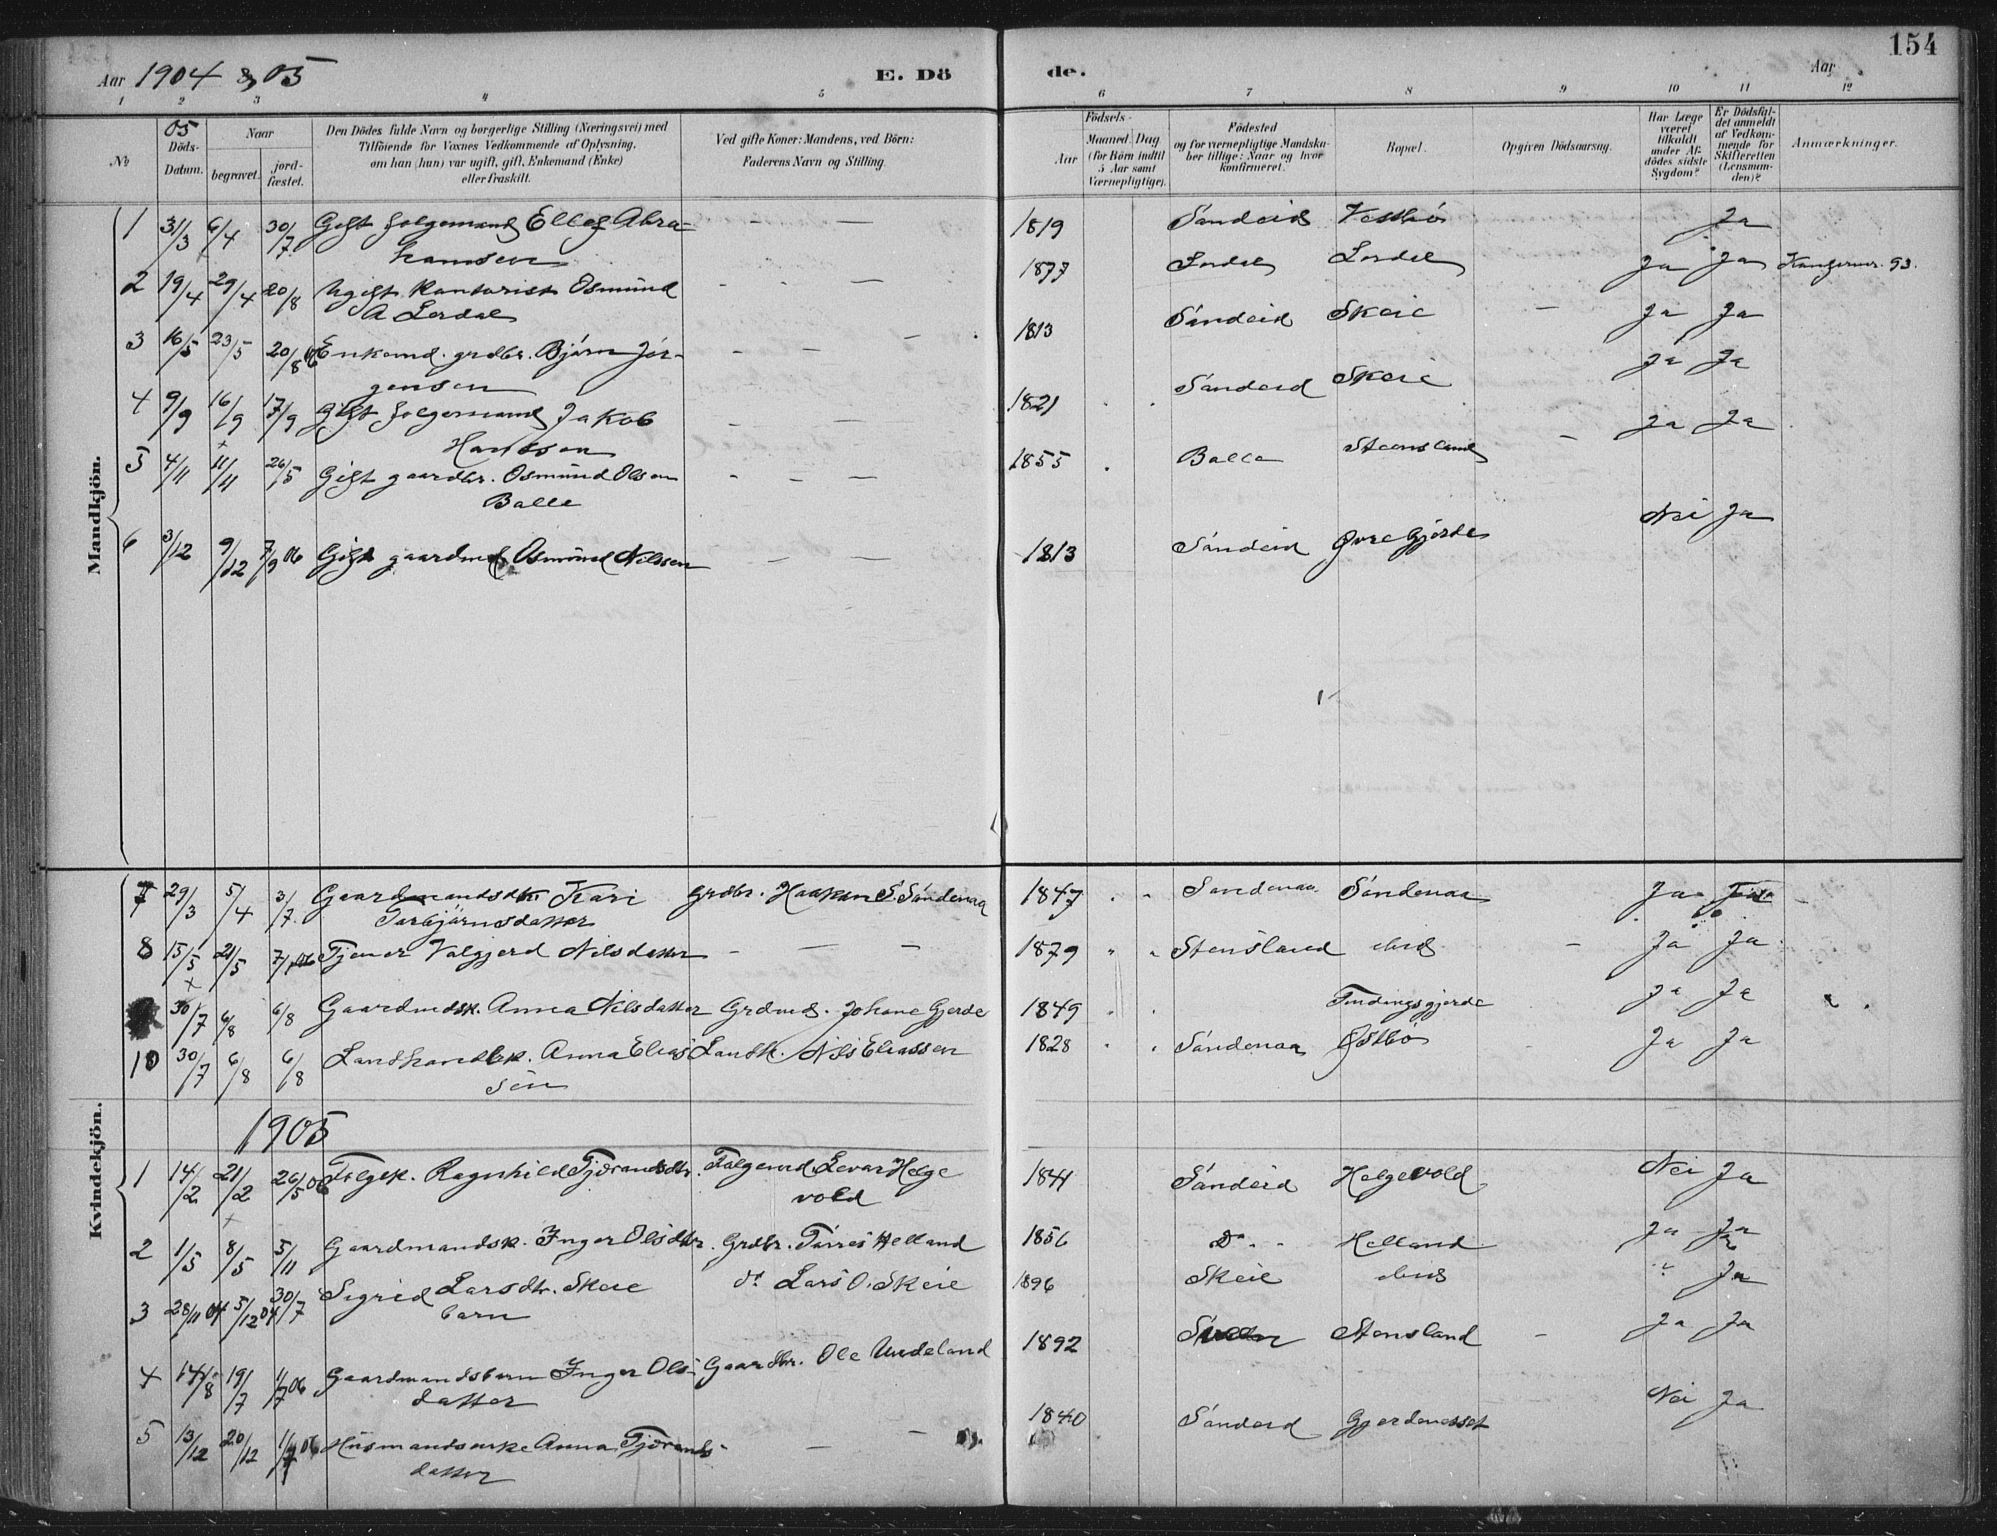 154
Aar 1904 & 05 E. Dö de. Aar
1 2 3 4 5 6 7 8 9 10 11 12
No
05 Döds-Datum.
Naar begravet. jord-fæstet.
Den Dödes fulde Navn og borgerlige Stilling (Næringsvei) med
Tilföiende for Voxnes Vedkommende af Oplysning,
om han (hun) var ugift, gift, Enkemand (Enke)
eller fraskilt.
Ved gifte Koner: Mandens, ved Börn:
Faderens Navn og Stilling.
Födsels-
Aar Maaned. Dag
(for Börn indtil
5 Aar samt
Værnepligtige).
Födested
og for værnepligtige Mandskaber tillige: Naar og hvor
konfirmeret.
Bopæl.
Opgiven Dödsaarsag.
Har Læge
været
tilkaldt
under Afdödes sidste
Sygdom?
Er Dödsfaldet anmeldt
af Vedkommende for
Skifteretten
(Lensmanden)?
Anmærkninger.
Mandkjön.
1 31/3 6/4 30/7 Gift folgemand Ellef Abra- — — 1819 Sandeid Vestbö Ja
hamsen
2 19/4 29/4 20/8 Ugift Kontorist Osmund — — 1877 Lordal Lordal Ja Ja
A Lordal
3 16/5 23/5 20/8 06 Enkemd. grdbr. Björn Jör- — — 1813 Sandeid Skeie — Ja Ja
gensen
4 9/9 16/9 17/9 Gift folgemand Jakob — — 1821 Sandeid Skeie Ja Ja
Hanssen
5 4/11 11/11 26/5 Gift gaardbr. Osmund Olsen — — 1855 Balle Steensland — Ja Ja
Balle
6 3/12 9/12 7/9 06 Gift gaardmd Asmund Nilssen — — 1813 Sandeid Øvre Gjerde Nei Ja
Kvindekjön.
7 29/3 5/4 3/7 Gaardmandsk. Kari Grdbr. Haakon S. Søndenaa 1847 Sandenaa Søndenaa Ja
Torbjørnsdatter
8 15/5 21/5 7/1 06 Tjener Valgjerd Nilsdatter — — 1879 Stensland ibid — Ja Ja
30/7 6/8 6/8 Gaardmdsk. Anna Nilsdatter Grdmd. Johane Gjerde 1849 Tindingsgjerde Ja Ja
10 30/7 6/8 6/8 Landhandlk. Anna Elias Landh. Nils Eliassen 1828 Søndenaa Østbö Ja Ja
sen
1905
1 14/2 21/2 26/5 06 Folgek. Ragnhild Tjørandsdtr. Folgemd. Levar Helge 1841 Sandeid Helgevold Nei Ja
vold
2 1/5 8/5 5/11 Gaardmandsk. Inger Olsdtr. Grdbr. Tørres Helland 1856 Do Helland Ja Ja
3 28/11 04 5/12 04 30/7 Sigrid Larsdtr. Skeie do Lars O. Skeie 1896 Skeie ibid " Ja
barn
4 14/8 19/7 1/7 06 Gaardmandsbarn Inger Ols- Gaardbr. Ole Undeland 1892 Stensland — Ja Ja
datter
5 13/12 20/12 06 Husmandsenke Anna Tjørands- — — 1840 Sandeid Gjerdenesset Nei Ja
datter